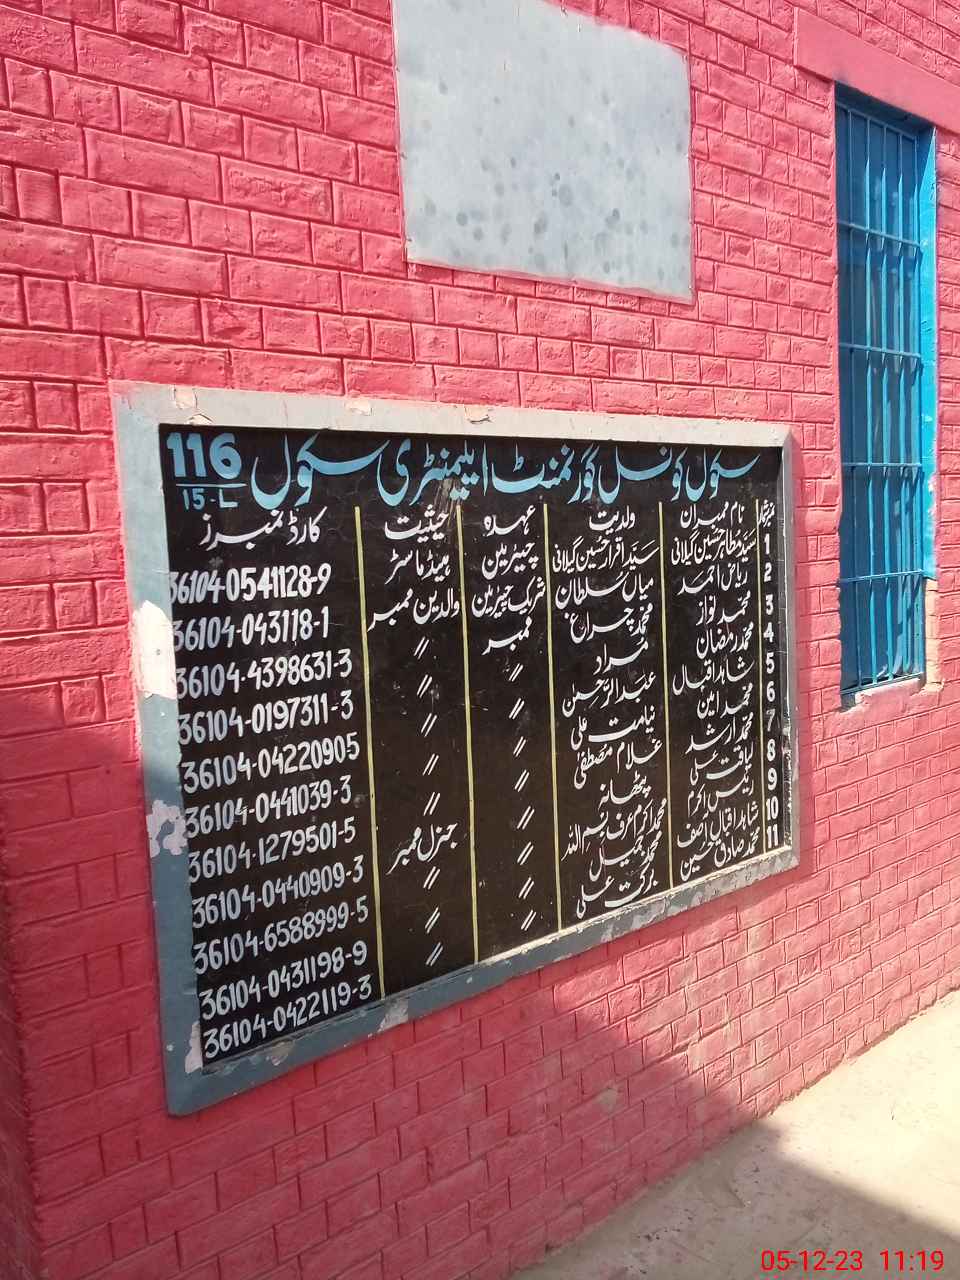 سکول کونسل گورنمنٹ ایلیمنٹری سکول 116/15-L
نمبر شمار نام ممبران ولدیت عہدہ حیثیت کارڈ نمبرز
1 سید مظاہر حسین گیلانی سید اقرار حسین گیلانی چیئرمین ہیڈ ماسٹر 36104-0541128-9
2 ریاض احمد میاں سلطان شریک چیئرمین والدین ممبر 36104-043118-1
3 محمد نواز محمد چراغ ممبر 〃 36104-4398631-3
4 محمد رمضان مراد 〃 〃 36104-0197311-3
5 شاہد اقبال عبدالرحمن 〃 〃 36104-04220905
6 محمد امین نیامت علی 〃 〃 36104-0441039-3
7 محمد ارشد غلام مصطفی 〃 〃 36104-1279501-5
8 لیاقت علی پٹھانہ 〃 جنرل ممبر 36104-0440909-3
9 رئیس اکرم محمد اکرم عرف بسم اللہ 〃 〃 36104-6588999-5
10 شاہد اقبال آصف محمد جمیل 〃 〃 36104-0431198-9
11 محمد صادق حسین برکت علی 〃 〃 36104-0422119-3
05-12-23 11:19